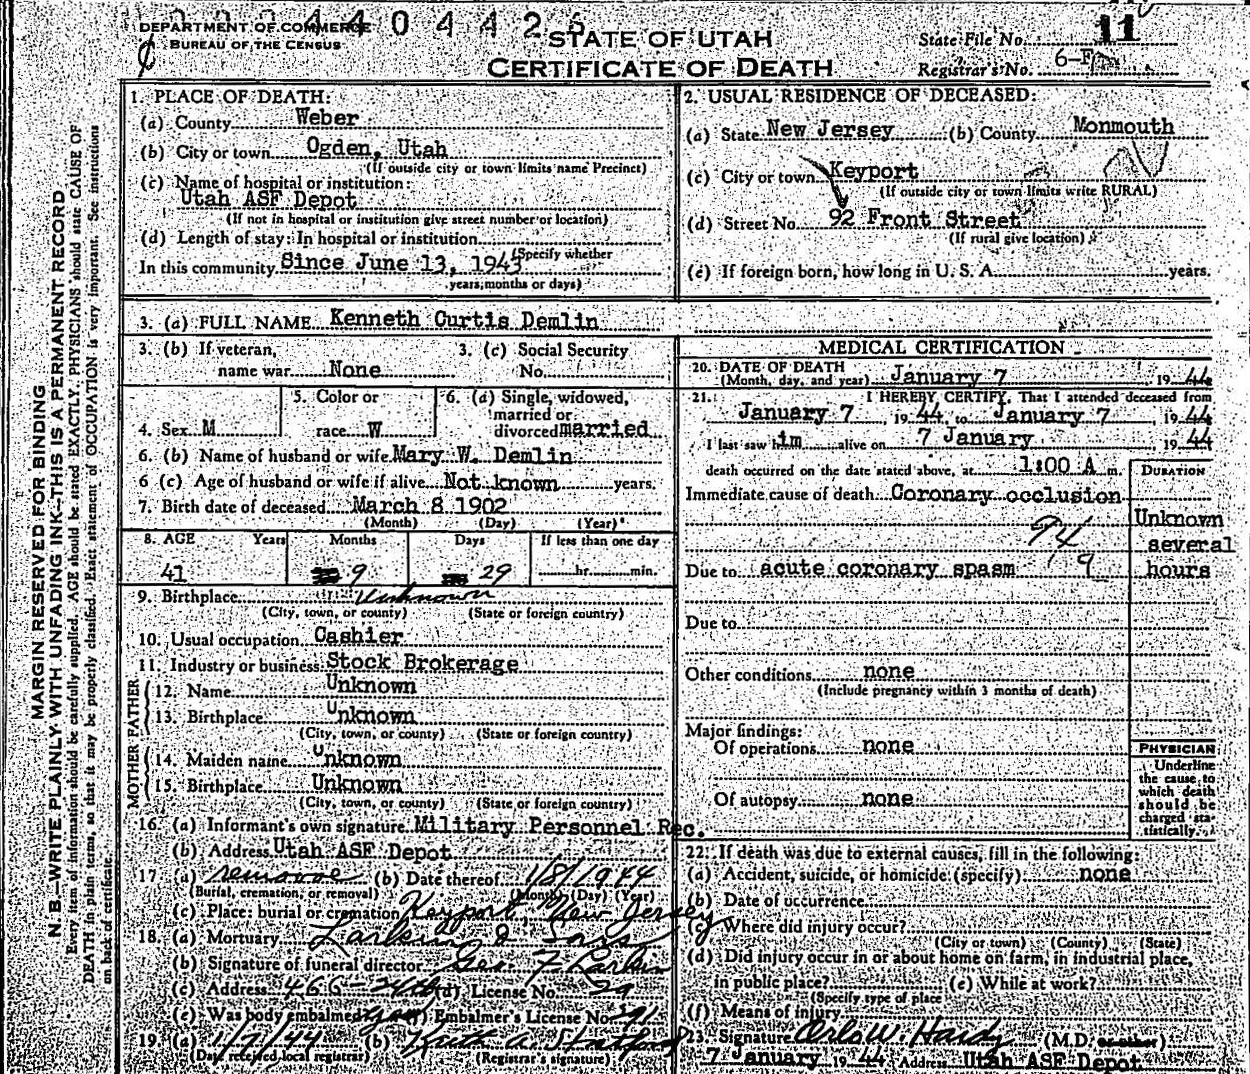 0 0 4 4 0 4 4 2 6
DEPARTMENT OF COMMERCE
BUREAU OF THE CENSUS
STATE OF UTAH
CERTIFICATE OF DEATH
State File No. 11
Registrar's No. 6-F
1. PLACE OF DEATH:
(a) County Weber
(b) City or town Ogden, Utah
(If outside city or town limits name Precinct)
(c) Name of hospital or institution:
Utah ASF Depot
(If not in hospital or institution give street number or location)
(d) Length of stay: In hospital or institution
(Specify whether
In this community Since June 13, 1943
years, months or days)
2. USUAL RESIDENCE OF DECEASED:
(a) State New Jersey (b) County Monmouth
(c) City or town Keyport
(If outside city or town limits write RURAL)
(d) Street No. 92 Front Street
(If rural give location)
(e) If foreign born, how long in U. S. A. years.
3. (a) FULL NAME Kenneth Curtis Demlin
3. (b) If veteran, name war None
3. (c) Social Security No.
4. Sex M
5. Color or race W
6. (a) Single, widowed, married or divorced married
6. (b) Name of husband or wife Mary W. Demlin
6 (c) Age of husband or wife if alive Not known years.
7. Birth date of deceased March 8 1902
(Month) (Day) (Year)
8. AGE Years Months Days If less than one day
41 9 29 hr. min.
9. Birthplace Unknown
(City, town, or county) (State or foreign country)
10. Usual occupation Cashier
11. Industry or business Stock Brokerage
FATHER
12. Name Unknown
13. Birthplace Unknown
(City, town, or county) (State or foreign country)
MOTHER
14. Maiden name Unknown
15. Birthplace Unknown
(City, town, or county) (State or foreign country)
16. (a) Informant's own signature Military Personnel Rec.
(b) Address Utah ASF Depot
17 (a) removal (b) Date thereof 1/8/1944
(Burial, cremation, or removal) (Month) (Day) (Year)
(c) Place: burial or cremation Keyport, New Jersey
18. (a) Mortuary Larkin & Sons
(b) Signature of funeral director Geo. F. Larkin
(c) Address 466-24th (d) License No. 29
(e) Was body embalmed? yes Embalmer's License No. 291
19. (a) 1/7/44 (b) Ruth A. Stratford
(Date received local registrar) (Registrar's signature)
MEDICAL CERTIFICATION
20. DATE OF DEATH
(Month, day, and year) January 7 1944
21. I HEREBY CERTIFY, That I attended deceased from
January 7, 1944, to January 7, 1944
I last saw him alive on 7 January 1944
death occurred on the date stated above, at 1:00 A m.
DURATION
Immediate cause of death Coronary occlusion
Unknown
94
several
Due to acute coronary spasm 9 hours
Due to
Other conditions none
(Include pregnancy within 3 months of death)
Major findings:
Of operations none
Of autopsy none
PHYSICIAN
Underline
the cause to
which death
should be
charged sta-
tistically.
22. If death was due to external causes, fill in the following:
(a) Accident, suicide, or homicide (specify) none
(b) Date of occurrence
(c) Where did injury occur?
(City or town) (County) (State)
(d) Did injury occur in or about home on farm, in industrial place,
in public place? (e) While at work?
(Specify type of place
(f) Means of injury
23. Signature Orlo W. Hardy (M.D. or other)
7 January 1944 Address Utah ASF Depot
MARGIN RESERVED FOR BINDING
N. B.—WRITE PLAINLY WITH UNFADING INK—THIS IS A PERMANENT RECORD
Every item of information should be carefully supplied. AGE should be stated EXACTLY. PHYSICIANS should state CAUSE OF
DEATH in plain terms, so that it may be properly classified. Exact statement of OCCUPATION is very important. See instructions
on back of certificate.